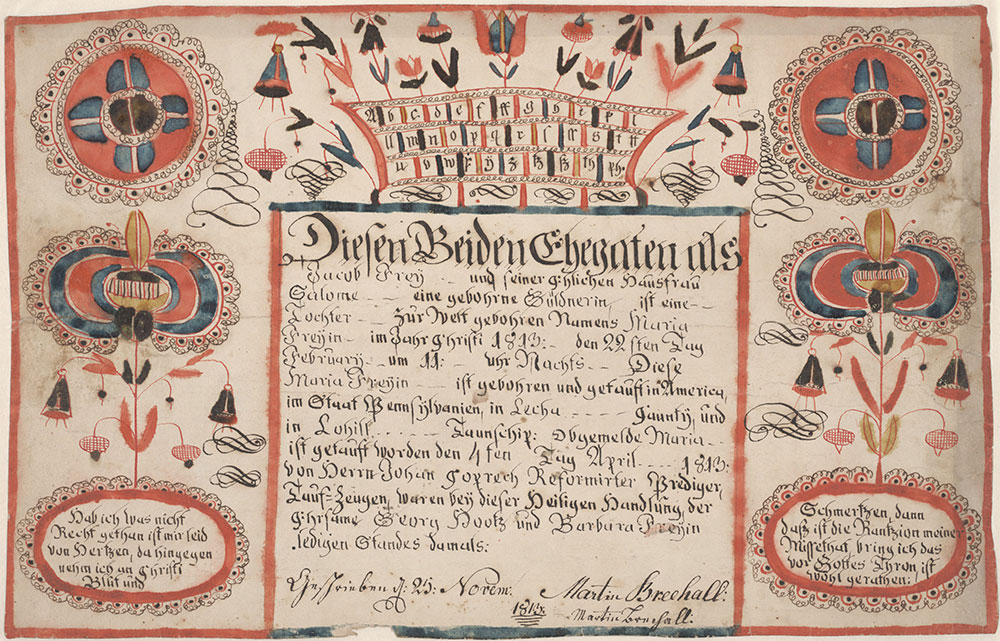 A b c d e f ff g h i k l
ll m n o p q r s ſ ſſ ß t tt
u v w x ÿ z tz ſz th ph.
Diesen Beiden Ehegaten als
Jacob Freÿ und seiner Ehlichen Hausfrau
Salome eine gebohrne Güldnerin ist eine
Tochter zur Welt gebohren Namens Maria
Freÿin im Jahr Christi 1813: den 22sten Tag
Februarÿ um 11: uhr Nachts Diese
Maria Freÿin ist gebohren und getauft in America,
im Staat Pennsÿlvanien, in Lecha Caunty, und
in Lohill Taunschip: Obgemelde Maria
ist getauft worden den 4ten Tag April 1813:
von Herrn Johan Goprech Reformirter Prediger,
Tauf-Zeugen, waren beÿ dieser Heiligen Handlung, der
Ehrsame Georg Hootz und Barbara Freÿin
ledigen Standes damals:
Geschrieben d: 25: Novem.
Martin Brechall.
Martin Brechall.
Hab ich was nicht
Recht gethan ist mir leid
von Hertzen, da hingegen
nehm ich an Christi
Blut und
Schmertzen, dann
daß ist die Rantzion meiner
Missethat, bring ich das
vor Gottes Thron ist
wohl gerathen: